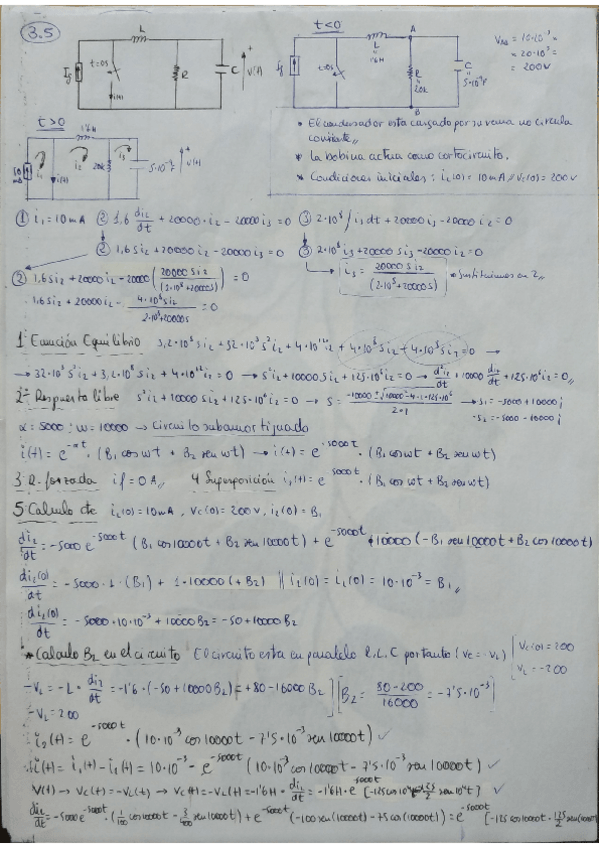 3.5
L
t<0
If
t=0s
R
C
V(t)
i(t)
If
t=0s
L
1'6H
A
R
20k
B
C
5·10⁻⁹F
V_AB = 10·10⁻³ ×
× 20·10³ =
= 200V
t>0
1'6H
i1
i2
i3
i(t)
20k
V(t)
• El condensador esta cargado por su rama no circula
corriente //
* La bobina actua como cortocircuito.
* Condiciones iniciales: iL(0) = 10mA // Vc(0) = 200V
① i1 = 10mA ② 1,6 di2/dt + 20000·i2 - 20000 i3 = 0 ③ 2·10⁸ ∫ i3 dt + 20000 i3 - 20000 i2 = 0
② 1,6 S i2 + 20000 i2 - 20000 i3 = 0 ③ 2·10⁸ i3 + 20000 S i3 - 20000 i2 = 0
② 1,6 S i2 + 20000 i2 - 20000 (20000 S i2 / (2·10⁸ + 20000S)) = 0
i3 = 20000 S i2 / (2·10⁸ + 20000S) * Sustituimos en 2 //
1,6 S i2 + 20000 i2 - 4·10⁸ S i2 / 2·10⁸ + 20000S = 0
1º Ecuación Equilibrio 3,2·10⁸ S i2 + 32·10³ S² i2 + 4·10¹² i2 + 4·10⁸ S i2 + 4·10⁸ S i2 = 0 →
→ 32·10³ S² i2 + 3,2·10⁸ S i2 + 4·10¹² i2 = 0 → S² i2 + 10000 S i2 + 125·10⁶ i2 = 0 → d²i2/dt + 10000 di2/dt + 125·10⁶ i2 = 0 //
2º Respuesta libre S² i2 + 10000 S i2 + 125·10⁶ i2 = 0 → S = -10000 ± √10000² - 4·1·125·10⁶ / 2·1 → S1 = -5000 + 10000 j
S2 = -5000 - 10000 j
α = 5000; w = 10000 → circuito subamortiguado
i(t) = e^-αt · (B1 cos wt + B2 sen wt) → i(t) = e^-5000t · (B1 cos wt + B2 sen wt)
3 R. forzada if = 0A // 4 Superposición i2(t) = e^-5000t · (B1 cos wt + B2 sen wt)
5 Calculo de iL(0) = 10mA, Vc(0) = 200V, i2(0) = B1
di2/dt = -5000 e^-5000t (B1 cos 10000t + B2 sen 10000t) + e^-5000t · 10000 (-B1 sen 10000t + B2 cos 10000t)
di2(0)/dt = -5000 · 1 · (B1) + 1·10000 (+B2) || i2(0) = iL(0) = 10·10⁻³ = B1 //
di2(0)/dt = -5000·10·10⁻³ + 10000 B2 = -50 + 10000 B2
* Calculo B2 en el circuito El circuito esta en paralelo R.L.C por tanto (Vc = -VL)
Vc(0) = 200
VL = -200
-VL = -L · di2/dt = -1'6 · (-50 + 10000 B2) = +80 - 16000 B2
-VL = 200
B2 = 80 - 200 / 16000 = -7'5·10⁻³
i2(t) = e^-5000t · (10·10⁻³ cos 10000t - 7'5·10⁻³ sen 10000t) ✓
i(t) = i1(t) - i2(t) = 10·10⁻³ - e^-5000t (10·10⁻³ cos 10000t - 7'5·10⁻³ sen 10000t) ✓